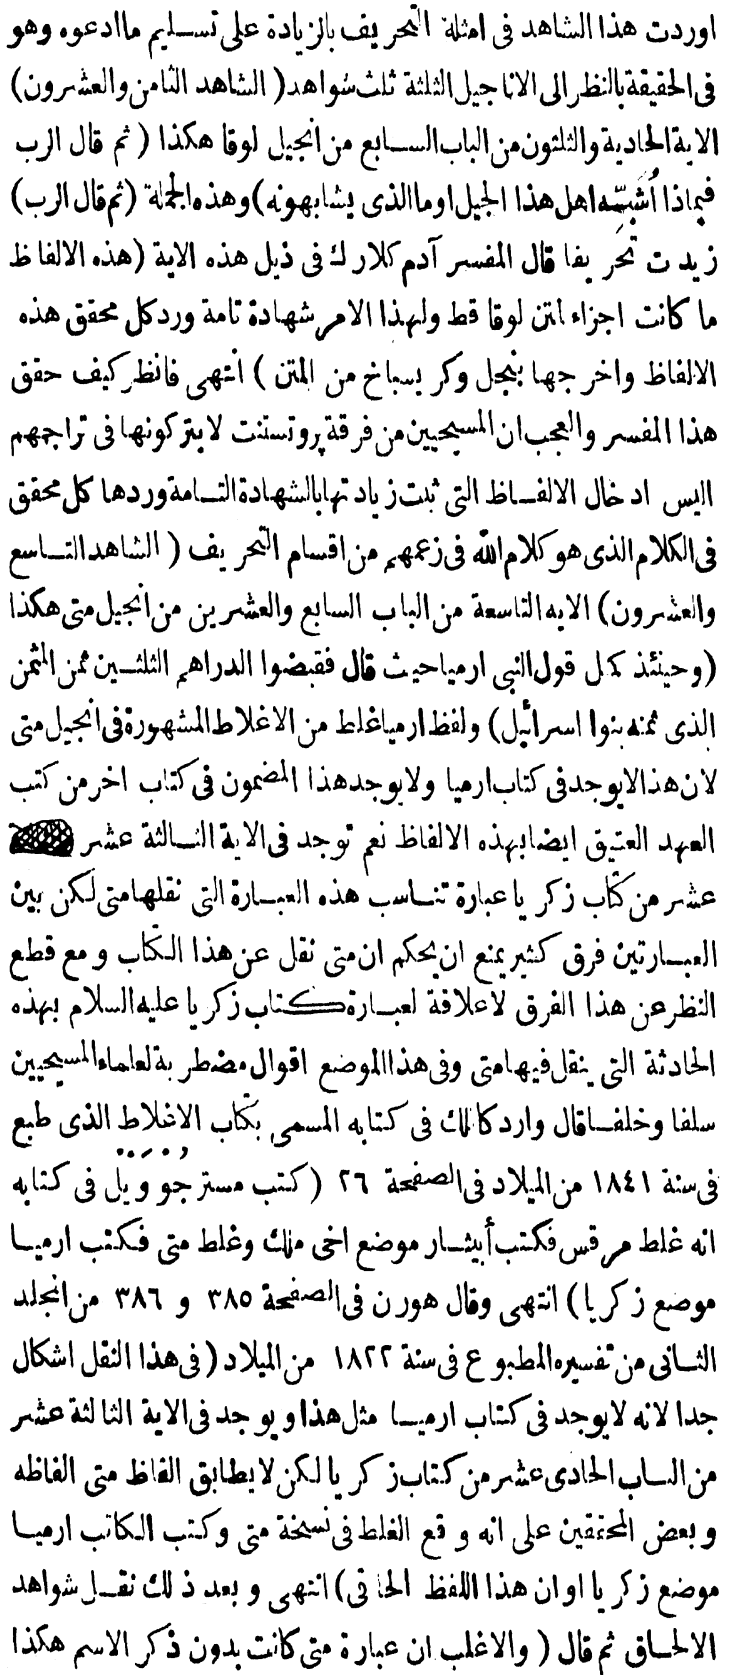 اوردت هذا الشاهد فى امثلة التحريف بالزيادة على تسليم ما ادعوه وهو
فى الحقيقة بالنظر الى الاناجيل الثلثة ثلث شواهد (الشاهد الثامن والعشرون)
الاية الحادية والثلثون من الباب السابع من انجيل لوقا هكذا (ثم قال الرب
فبماذا أُشَبِّه اهل هذا الجيل او ما الذى يشابهونه) وهذه الجملة (ثم قال الرب)
زيدت تحريفا قال المفسر آدم كلارك فى ذيل هذه الاية (هذه الالفاظ
ما كانت اجزاء لمتن لوقا قط ولهذا الامر شهادة تامة ورد كل محقق هذه
الالفاظ واخرجها بنجل وكريسباخ من المتن) انتهى فانظر كيف حقق
هذا المفسر والعجب ان المسيحيين من فرقة پروتستنت لا يتركونها فى تراجمهم
اليس ادخال الالفاظ التى ثبت زيادتها بالشهادة التامة وردها كل محقق
فى الكلام الذى هو كلام الله فى زعمهم من اقسام التحريف (الشاهد التاسع
والعشرون) الايه التاسعة من الباب السابع والعشرين من انجيل متى هكذا
(وحينئذ كمل قول النبى ارميا حيث قال فقبضوا الدراهم الثلثين ثمن المثمن
الذى ثمنه بنوا اسرائيل) ولفظ ارميا غلط من الاغلاط المشهورة فى انجيل متى
لان هذا لا يوجد فى كتاب ارميا ولا يوجد هذا المضمون فى كتاب اخر من كتب
العهد العتيق ايضا بهذه الالفاظ نعم توجد فى الاية الثالثة عشر
عشر من كتاب زكريا عبارة تناسب هذه العبارة التى نقلها متى لكن بين
العبارتين فرق كثير يمنع ان يحكم ان متى نقل عن هذا الكتاب ومع قطع
النظر عن هذا الفرق لا علاقة لعبارة كتاب زكريا عليه السلام بهذه
الحادثة التى ينقل فيها متى وفى هذا الموضع اقوال مضطربة لعلماء المسيحيين
سلفا وخلفا قال وارد كاتلك فى كتابه المسمى بكتاب الاغلاط الذى طبع
فى سنة ١٨٤١ من الميلاد فى الصفحة ٢٦ (كتب مستر جوويل فى كتابه
انه غلط مرقس فكتب أبيثار موضع اخى ملك وغلط متى فكتب ارميا
موضع زكريا) انتهى وقال هورن فى الصفحة ٣٨٥ و ٣٨٦ من المجلد
الثانى من تفسيره المطبوع فى سنة ١٨٢٢ من الميلاد (فى هذا النقل اشكال
جدا لانه لا يوجد فى كتاب ارميا مثل هذا ويوجد فى الاية الثالثة عشر
من الباب الحادى عشر من كتاب زكريا لكن لا يطابق الفاظ متى الفاظه
وبعض المحققين على انه وقع الغلط فى نسخة متى وكتب الكاتب ارميا
موضع زكريا او ان هذا اللفظ الحاقى) انتهى وبعد ذلك نقل شواهد
الالحاق ثم قال (والاغلب ان عبارة متى كانت بدون ذكر الاسم هكذا